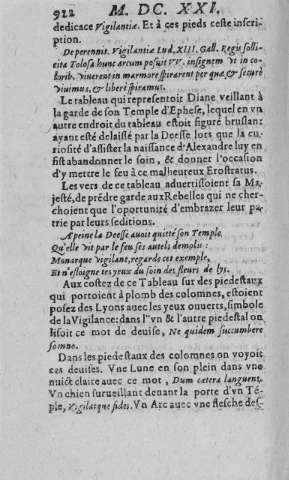 922 M. DC. XXI.
dedicace Vigilantiæ. Et à ces pieds ceste inscri-
ption.
De perenni. Vigilantia Lud. XIII. Gall. Regis solli-
cita Tolosa hunc arcum posuit VV. insignem vt in co-
horib. viuerent in marmore spirarent per quæ, & securè
viuimus, & liberè spiramus.
Le tableau qui representoit Diane veillant à
la garde de son Temple d'Ephese, lequel en vn
autre endroit du tableau estoit figuré bruslant
ayant esté delaissé par la Deesse lors que la cu-
riosité d'assister la naissance d'Alexandre luy en
fist abandonner le soin, & donner l'occasion
d'y mettre le feu à ce malheureux Erostratus.
Les vers de ce tableau aduertissoient sa Ma-
jesté, de prédre garde aux Rebelles qui ne cher-
choient que l'oportunité d'embrazer leur pa-
trie par leurs seditions.
A peine la Deesse auoit quitté son Temple
Qu'elle vit par le feu ses autels demolis:
Monarque vigilant, regards cet exemple,
Et n'esloigne tes yeux du soin des fleurs de lys.
Aux costez de ce Tableau sur des piedestaux
qui portoient à plomb des colomnes, estoient
posez des Lyons auec les yeux ouuerts, simbole
de la Vigilance: dans l'vn & l'autre piedestal on
lisoit ce mot de deuise, Ne quidem succumbere
somno.
Dans les piedestaux des colomnes on voyoit
ces deuises. Vne Lune en son plein dans vne
nuict claire auec ce mot, Dum cætera languent.
Vn chien surueillant deuant la porte d'vn Té-
ple, Vigilatque fides. Vn Arc auec vne flesche des-